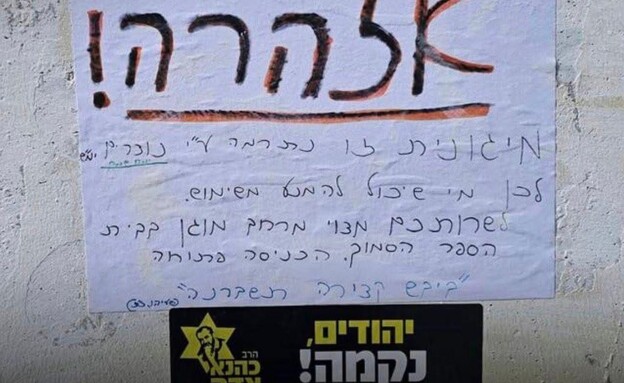 אזהרה!
מיגונית זו נתרמה ע"י נוצרים ימ"ש
לכן מי שיכול להמנע משימוש.
לשרותכם מצוי מרחב מוגן בבית
הספר הסמוך. הכניסה פתוחה
"ביבש קצירה תשברנה"
יהודים,
נקמה!
הרב
כהנא
צדק